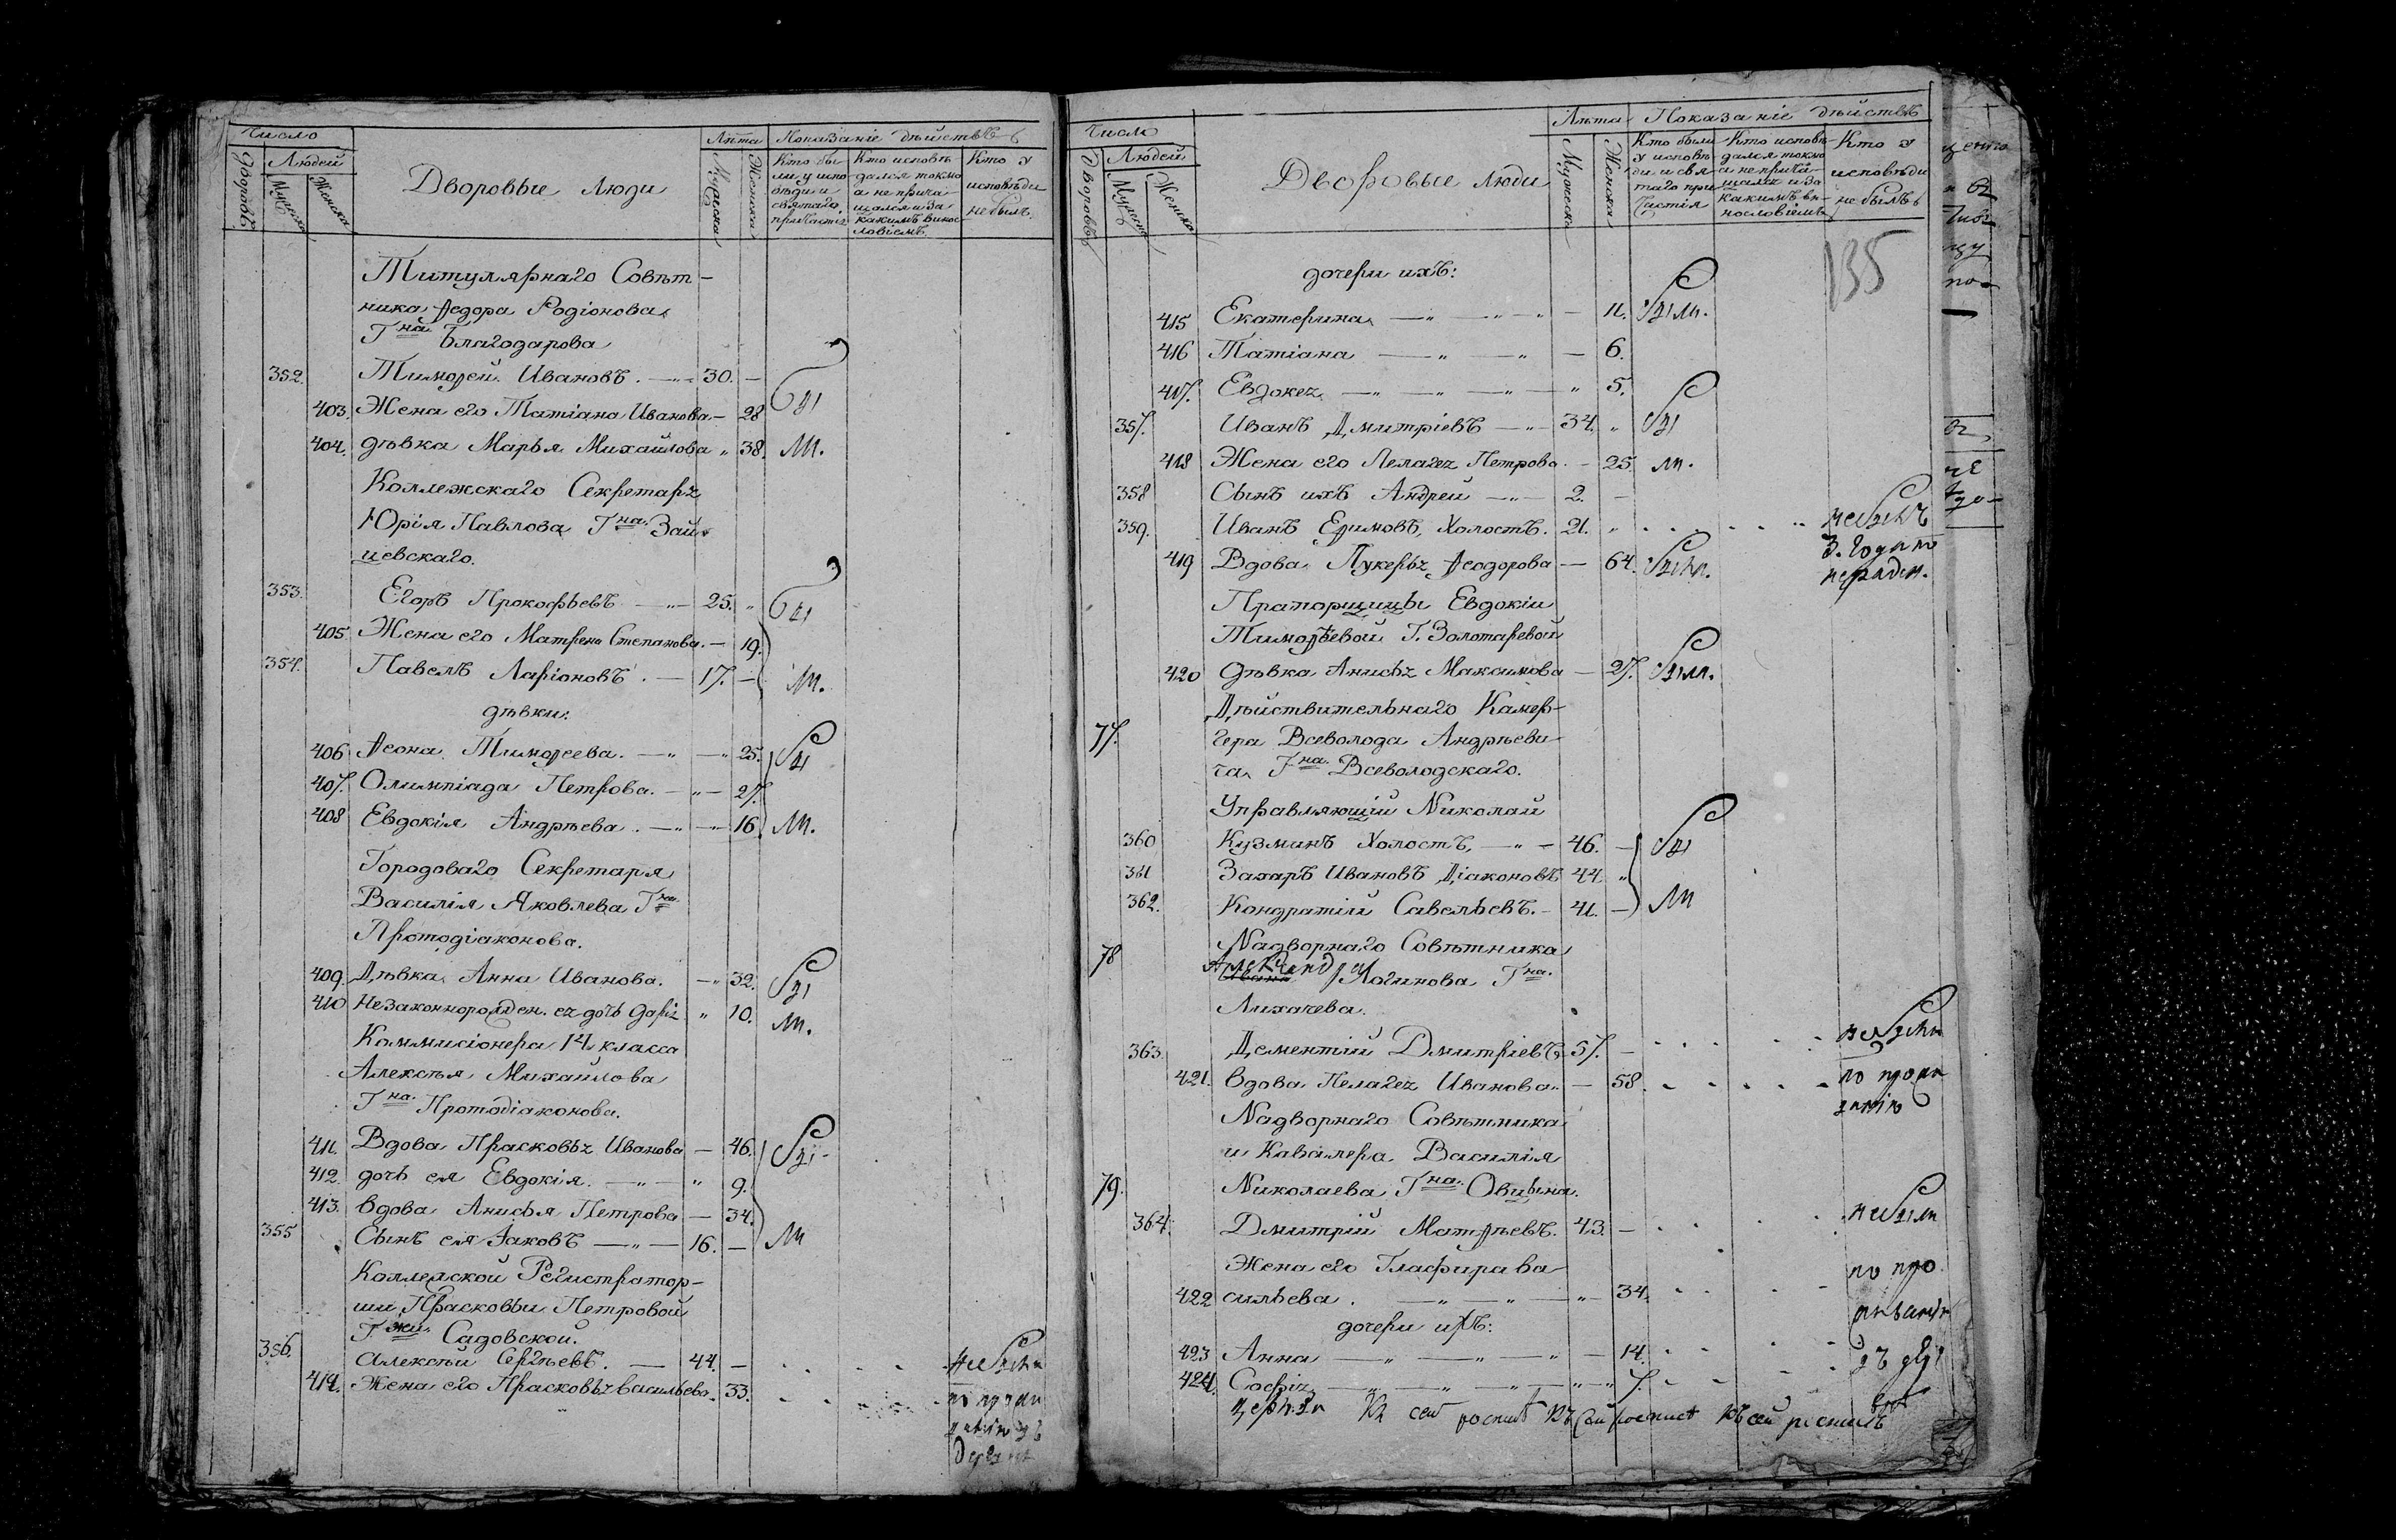 Число
Людей
Дворовъ
Мужеска
Женска
Дворовые Люди
Лѣта
Мужеска
Женска
Показаніе дѣйствъ
Кто бы
ли у испо
вѣди и
святаго
причастія
Кто исповѣ
дался токмо
а не прича
щался и за
какимъ винос
ловіемъ
Кто у
исповѣди
не былъ.
Титулярнаго Совѣт-
ника Ѳедора Родіонова
Гна Благодарова
352. Тимоѳей Ивановъ. 30. Бы
403. Жена его Татіана Иванова 28
404. дѣвка Марья Михайлова 38. ли.
Коллежскаго Секретаря
Юрія Павлова Гна Зай
цевскаго.
353. Егоръ Прокофьевъ 25. Бы
405. Жена его Матрена Степанова. 19.
354. Павелъ Ларіоновъ. 17. ли.
дѣвки:
406 Ѳеона Тимоѳеева. 25. Бы
407. Олимпіада Петрова. 27.
408 Евдокія Андрѣева. 16. ли.
Городоваго Секретаря
Василія Яковлева Гна
Протодіаконова.
409. Дѣвка Анна Иванова. 32. Бы
410 Незаконнорожден. ея дочь Дарья 10. ли.
Коммисіонера 14 класса
Алексѣя Михайлова
Гна Протодіаконова.
411. Вдова Прасковья Иванова 46. Бы
412. дочь ея Евдокія. 9.
413. вдова Анисья Петрова 34.
355 Сынъ ея Іаковъ 16. ли
Коллежской Регистратор-
ши Прасковьи Петровой
Гжи Садовской.
356. Алексѣй Сергѣевъ. 44. не были
414. Жена его Прасковья Васильева. 33.
Число
Людей
Дворовъ
Мужеска
Женска
Дворовые люди
Лѣта
Мужеска
Женска
Показаніе дѣйствъ
Кто были
у исповѣ
ди и свя
таго при
частія
Кто исповѣ
дался токмо
а не прича
щался и за
какимъ ви
нословіемъ
Кто у
исповѣди
не былъ
135
дочери ихъ:
415 Екатерина 11. были.
416 Татіана 6.
417. Евдокея 5.
357. Иванъ Дмитріевъ 34. бы
418 Жена его Пелагея Петрова. 25. ли.
358 Сынъ ихъ Андрей 2.
359. Иванъ Ефимовъ, Холостъ. 21. не былъ
3. года по
нераден.
419 Вдова Лукерья Ѳеодорова 64. была.
Прапорщицы Евдокіи
Тимоѳѣевой Г. Золотаревой
420 дѣвка Анисья Максимова 27. была.
Дѣйствительнаго Камер-
77. гера Всеволода Андрѣеви-
ча Гна Всеволодскаго.
Управляющій Николай
360 Кузминъ Холостъ, 46. бы
361 Захаръ Ивановъ Діаконовъ 44.
362. Кондратій Савельевъ. 41. ли
78 Надворнаго Совѣтника
Александра Логинова Гна
Лихачева.
363 Дементій Дмитріевъ 57. не были
421. вдова Пелагея Иванова. 58.
Надворнаго Совѣтника
и Кавалера Василія
79. Николаева Гна Овцына.
364. Дмитрій Матѳѣевъ. 43. не были
Жена его Глафира Ва
422 сильева. 34.
дочери ихъ:
423 Анна 14.
424. Софія 7.
Къ сей росписѣ Къ сей росписѣ Къ сей росписѣ